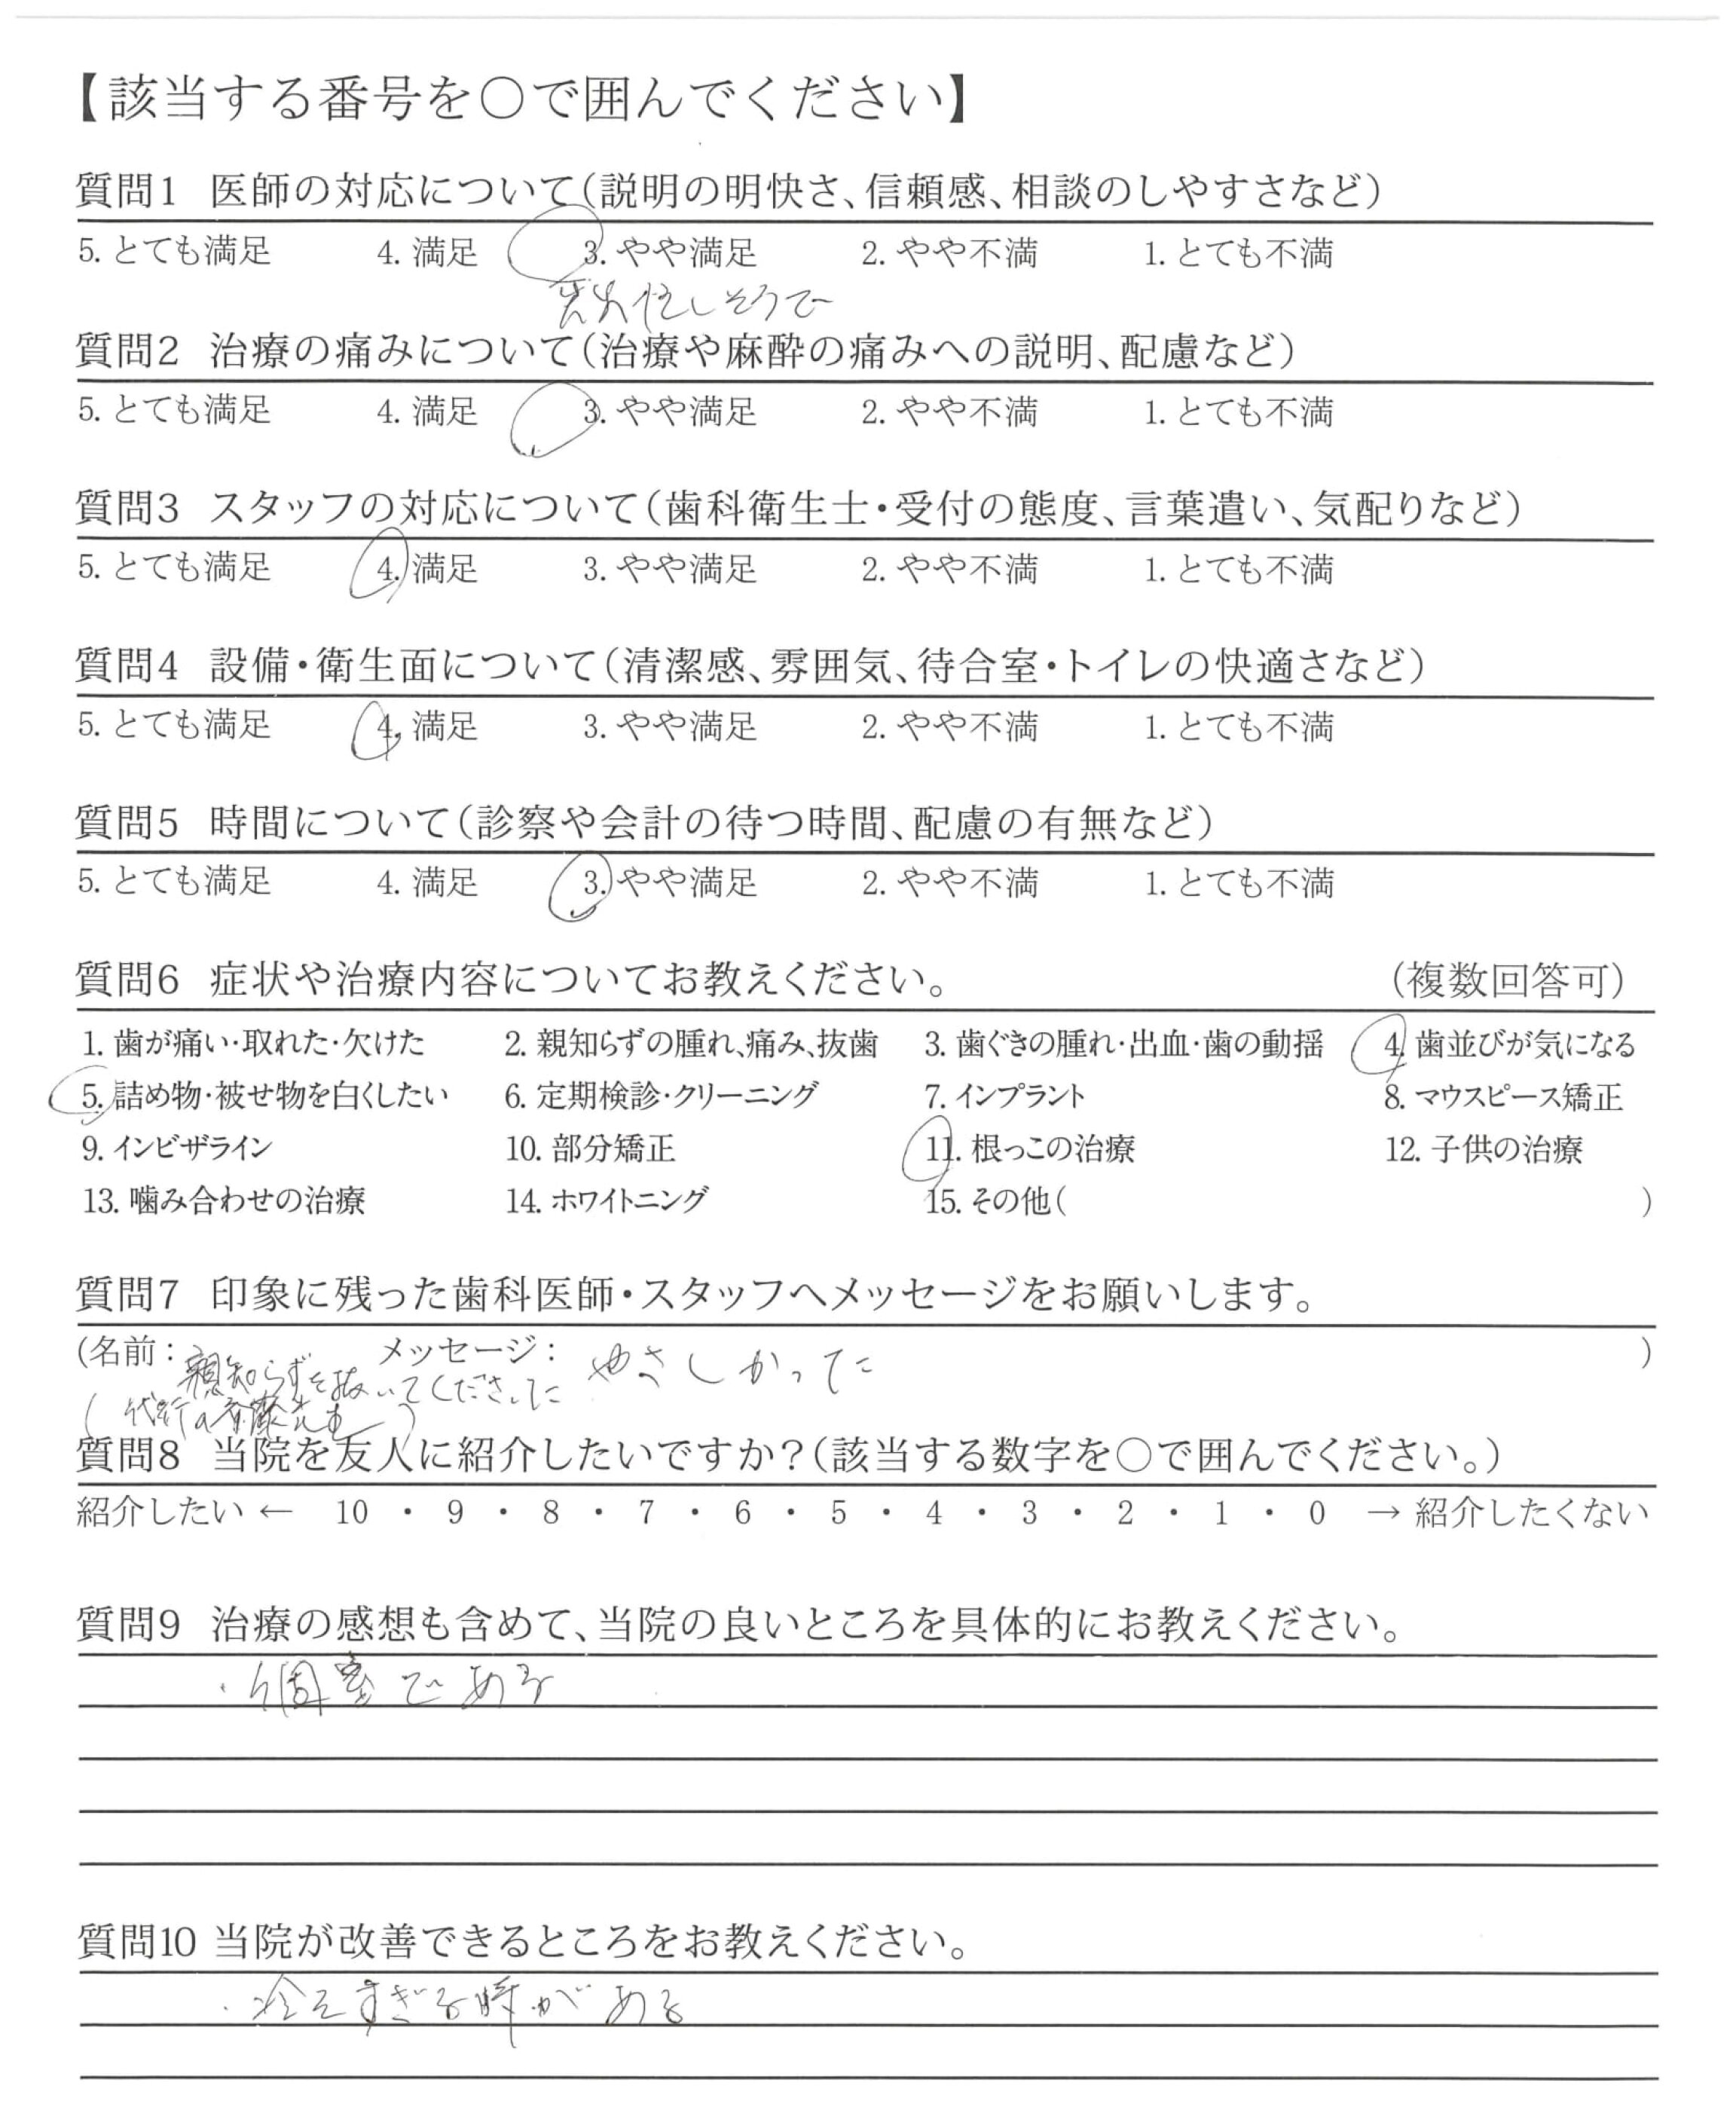 【該当する番号を○で囲んでください】
質問1 医師の対応について(説明の明快さ、信頼感、相談のしやすさなど)
5. とても満足 4. 満足 3. やや満足 2. やや不満 1. とても不満
忙しそうで
質問2 治療の痛みについて(治療や麻酔の痛みへの説明、配慮など)
5. とても満足 4. 満足 3. やや満足 2. やや不満 1. とても不満
質問3 スタッフの対応について(歯科衛生士・受付の態度、言葉遣い、気配りなど)
5. とても満足 4. 満足 3. やや満足 2. やや不満 1. とても不満
質問4 設備・衛生面について(清潔感、雰囲気、待合室・トイレの快適さなど)
5. とても満足 4. 満足 3. やや満足 2. やや不満 1. とても不満
質問5 時間について(診察や会計の待つ時間、配慮の有無など)
5. とても満足 4. 満足 3. やや満足 2. やや不満 1. とても不満
質問6 症状や治療内容についてお教えください。 (複数回答可)
1. 歯が痛い・取れた・欠けた 2. 親知らずの腫れ、痛み、抜歯 3. 歯ぐきの腫れ・出血・歯の動揺 4. 歯並びが気になる
5. 詰め物・被せ物を白くしたい 6. 定期検診・クリーニング 7. インプラント 8. マウスピース矯正
9. インビザライン 10. 部分矯正 11. 根っこの治療 12. 子供の治療
13. 噛み合わせの治療 14. ホワイトニング 15. その他( )
質問7 印象に残った歯科医師・スタッフへメッセージをお願いします。
(名前: メッセージ: やさしかった )
親知らずを抜いてくださった
(代行の斉藤先生)
質問8 当院を友人に紹介したいですか?(該当する数字を○で囲んでください。)
紹介したい ← 10 ・ 9 ・ 8 ・ 7 ・ 6 ・ 5 ・ 4 ・ 3 ・ 2 ・ 1 ・ 0 → 紹介したくない
質問9 治療の感想も含めて、当院の良いところを具体的にお教えください。
・個室である
質問10 当院が改善できるところをお教えください。
・冷えすぎる時がある